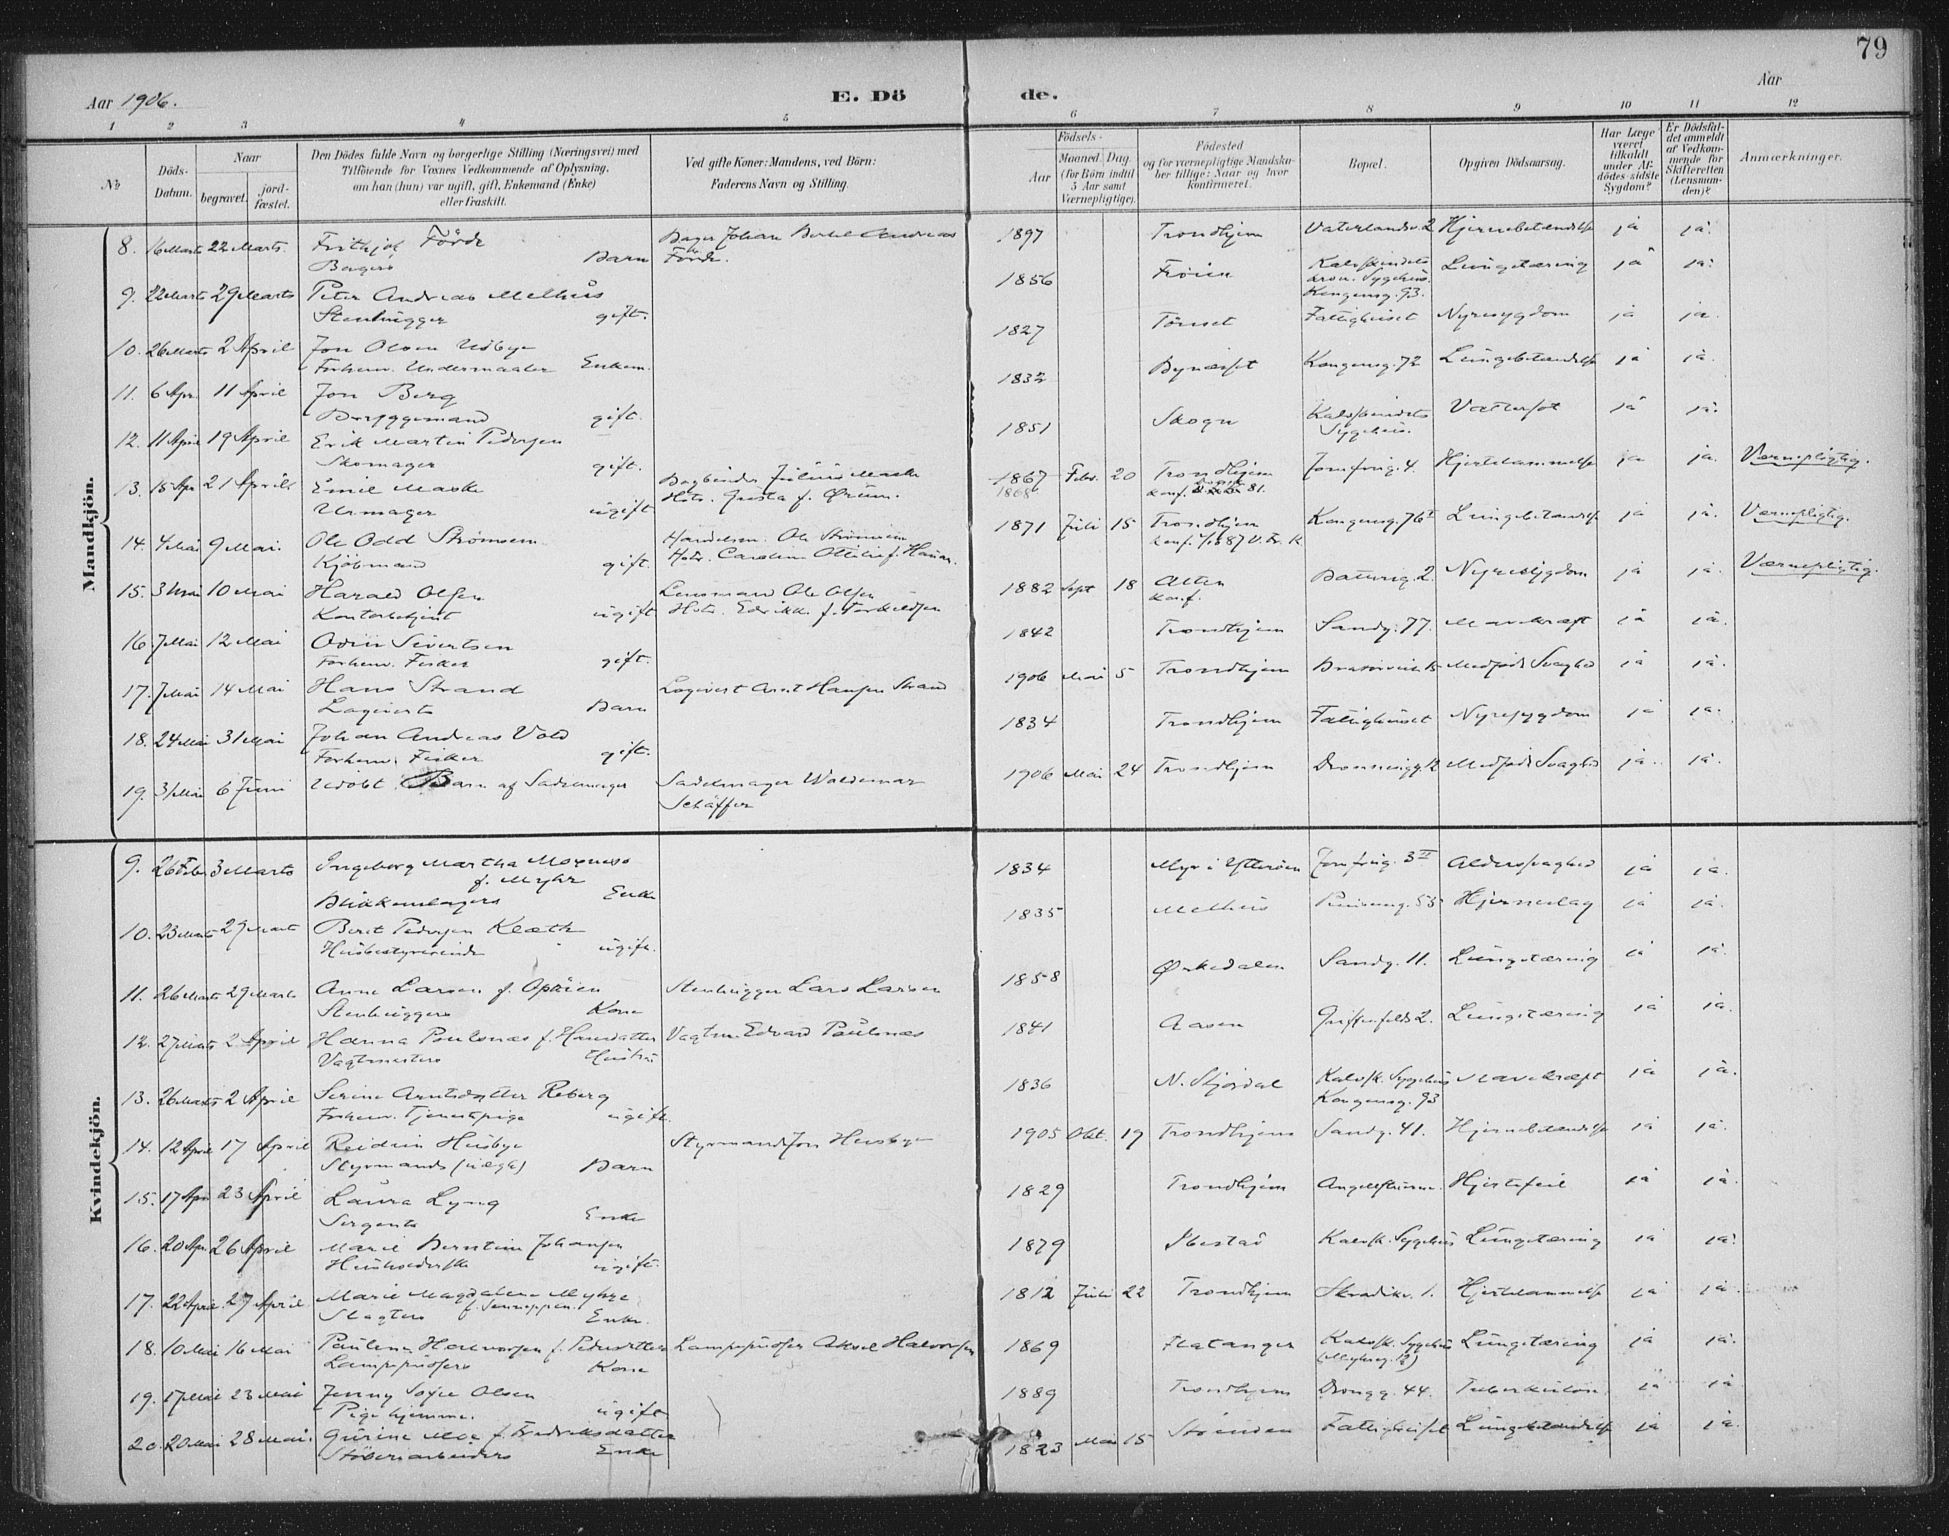 79
Aar 1906.
E. Dö de.
Aar
1 2 3 4 5 6 7 8 9 10 11 12
No
Döds-Datum.
Naar
begravet.
jord-fæstet.
Den Dödes fulde Navn og borgerlige Stilling (Næringsvei) med
Tilföiende for Voxnes Vedkommende af Oplysning,
om han (hun) var ugift, gift, Enkemand (Enke)
eller fraskilt.
Ved gifte Koner: Mandens, ved Börn:
Faderens Navn og Stilling.
Födsels-
Aar
Maaned. Dag.
(for Börn indtil
5 Aar samt
Værnepligtige).
Födested
og for værnepligtige Mandska-
ber tillige: Naar og hvor
konfirmeret.
Bopæl.
Opgiven Dödsaarsag.
Har Læge
været
tilkaldt
under Af-
dödes sidste
Sygdom?
Er Dödsfal-
det anmeldt
af Vedkom-
mende for
Skifteretten
(Lensman-
den)?
Anmærkninger.
Mandkjön.
8. 16 Marts 22 Marts Frithjof Förde Bager Johan Bertel Andreas 1897 Trondhjem Hjernebetændelse ja ja.
Bagers Barn Förde.
9. 22 Marts 29 Marts Peter Andreas Melhus 1856 Fröien Kalvskindets Lungetæring ja ja.
Stenhugger gift. Sygehus.
Kongensg. 93.
10. 26 Marts 2 April Jon Olsen Udbye 1827 Tönset Fattighuset Nyresygdom ja ja.
Forhenv. Undermaaler Enkem.
11. 6 Apr. 11 April Jon Berg 1832 Bynæsset Kongensg. 72 Lungebetændelse ja ja.
Bryggemand gift.
12. 11 April 19 April Erik Martin Pedersen 1851 Skogn Kalvskindets Vattersot ja ja.
Skomager gift. Sygehus.
13. 15 Apr 21 April Emil Maske Bogbinder Julius Maske 1867 Febr. 20 Trondhjem Jomfrug. 4. Hjertelammelse ja ja. Værnepligtig.
Urmager ugift f. Örum. 1868 konf. 81.
14. 4 Mai 9 Mai Ole Odd Strömsem Handelsm. Ole Strömsem 1871 Juli 15 Trondhjem Kongensg. 76 I Lungebetændelse ja ja. Værnepligtig.
Kjöbmand gift. Hstr. Caroline f. konf. 87 V. Fr. K
15. 3 Mai 10 Mai Harald Olsen Lensmand Ole Olsen 1882 Sept 18 Alten 2. Nyresygdom ja ja. Værnepligtig.
Kontorbetjent ugift Hstr. f. Torkildsen konf.
16 7 Mai 12 Mai Odin Sivertsen 1842 Trondhjem Sandg. 77. Mavekræft ja ja.
Forhenv. Fisker gift.
17. 7 Mai 14 Mai Hans Strand Logivert Arnt Hansen Strand 1906 Mai 5 Trondhjem Medfödt Svaghed ja ja.
Logiverts Barn
18. 24 Mai 31 Mai Johan Andreas Vold 1834 Trondhjem Fattighuset Nyresygdom ja ja.
Forhenv. Fisker gift.
19. 31 Mai 6 Juni Udöbt Barn af Sadelmager Sadelmager Waldemar 1906 Mai 24 Trondhjem Medfödt Svaghed ja. ja.
Schäffer
Kvindekjön.
9. 26 Febr 3 Marts Ingeborg Martha Moxness 1834 Myr i Ytteröen Jomfrug. 3 II Alderssvaghed ja ja.
f. Myhr
Blikkenslagers Enke
10. 23 Marts 29 Marts Beret Pedersen Klæth 1835 Melhus 55 Hjerneslag ja ja.
Husbestyrerinde ugift.
11. 26 Marts 29 Marts Anne Larsen f. Opöien Stenhugger Lars Larsen 1858 Ørkedalen Sandg. 11. Lungetæring ja ja.
Stenhuggers Kone
12. 27 Marts 2 April Hanna Paulsnas f. Hansdatter Vagtm. Edvard Paulsnas 1841 Aasen 2. Lungetæring ja ja.
Vagtmesters Hustru
13. 26 Marts 2 April Serine Arntsdatter Reberg 1836 N. Stjördal Kalvsk. Sygehus Mavekræft ja ja.
Forhenv. Tjenestpige ugift. Kongensg. 93
14. 12 April 17 April Reidun Husbye Styrmand Jon Husbye 1905 Okt. 19 Trondhjem Sandg. 41. Hjernebetændelse ja ja.
Styrmands (uægte) Barn
15. 17 Apr 23 April Laura Lyng 1829 Trondhjem Hjertefeil ja ja.
Sergents Enke
16. 20 Apr. 26 April Marie Berntine Johansen 1879 Ibestad Kalvsk. Sygehus Lungetæring ja ja.
Husholderske ugift.
17. 22 April 27 April Marie Magdalene Myhre 1812 Juli 22 Trondhjem 1. Hjertelammelse ja ja.
Slagters Enke.
18. 10 Mai 16 Mai Pauline Halvorsen f. Pedersdatter Lampepudser Aksel Halvorsen 1869 Flatanger Kalvsk. Sygehus Lungetæring ja ja.
Lampepudsers Kone
19. 17 Mai 23 Mai Jenny Sofie Olsen 1889 Trondhjem Drongg. 44. Tuberkulose ja ja
Pige hjemme. ugift
20. 20 Mai 28 Mai Gurine Moe f. Fredriksdatter 1823 Mai 15 Strinden Fattighuset Lungebetændelse ja ja.
Stöberiarbeiders Enke